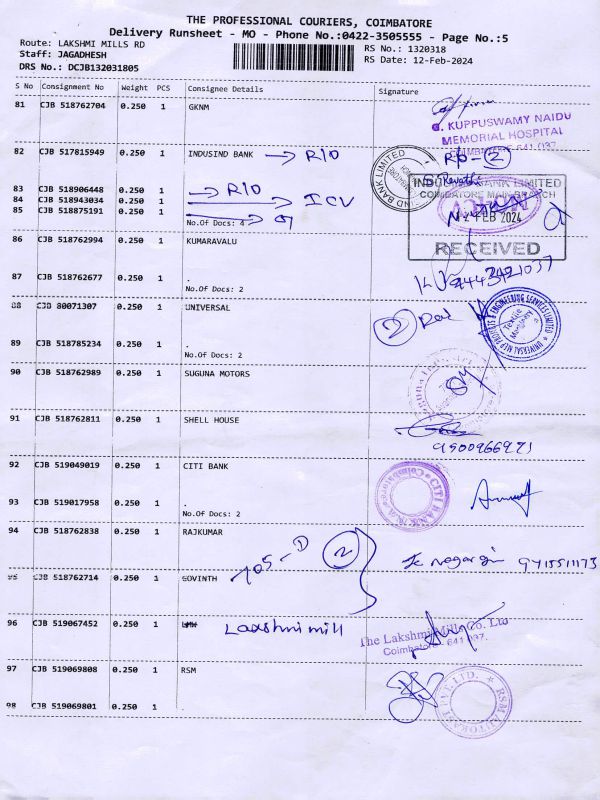 THE PROFESSIONAL COURIERS, COIMBATORE
Delivery Runsheet - MO - Phone No.:0422-3505555 - Page No.:5
Route: LAKSHMI MILLS RD
RS No.: 1320318
Staff: JAGADHESH
RS Date: 12-Feb-2024
DRS No.: DCJB132031805
S No Consignment No Weight PCS Consignee Details Signature
81 CJB 518762704 0.250 1 GKNM
G. KUPPUSWAMY NAIDU
MEMORIAL HOSPITAL
COIMBATORE-641 037.
82 CJB 517815949 0.250 1 INDUSIND BANK → R/O
83 CJB 518906448 0.250 1 → R/O
84 CJB 518943034 0.250 1 → ICV
85 CJB 518875191 0.250 1
No.Of Docs: 4
INDUSIND BANK LIMITED
COIMBATORE MAIN BRANCH
12 FEB 2024
RECEIVED
86 CJB 518762994 0.250 1 KUMARAVALU
87 CJB 518762677 0.250 1 .
No.Of Docs: 2
88 CJB 80071307 0.250 1 UNIVERSAL
2
UNIVERSAL MEP PROJECTS & ENGINEERING SERVICES LIMITED
Textile Machinery
89 CJB 518785234 0.250 1 .
No.Of Docs: 2
90 CJB 518762989 0.250 1 SUGUNA MOTORS
91 CJB 518762811 0.250 1 SHELL HOUSE
9500966971
92 CJB 519049019 0.250 1 CITI BANK
CITI BANK
93 CJB 519017958 0.250 1 .
No.Of Docs: 2
94 CJB 518762838 0.250 1 RAJKUMAR
2
95 CJB 518762714 0.250 1 GOVINTH
96 CJB 519067452 0.250 1 LMW Lakshmi mill
The Lakshmi Mills Co. Ltd
Coimbatore - 641 037.
97 CJB 519069808 0.250 1 RSM
98 CJB 519069801 0.250 1 .